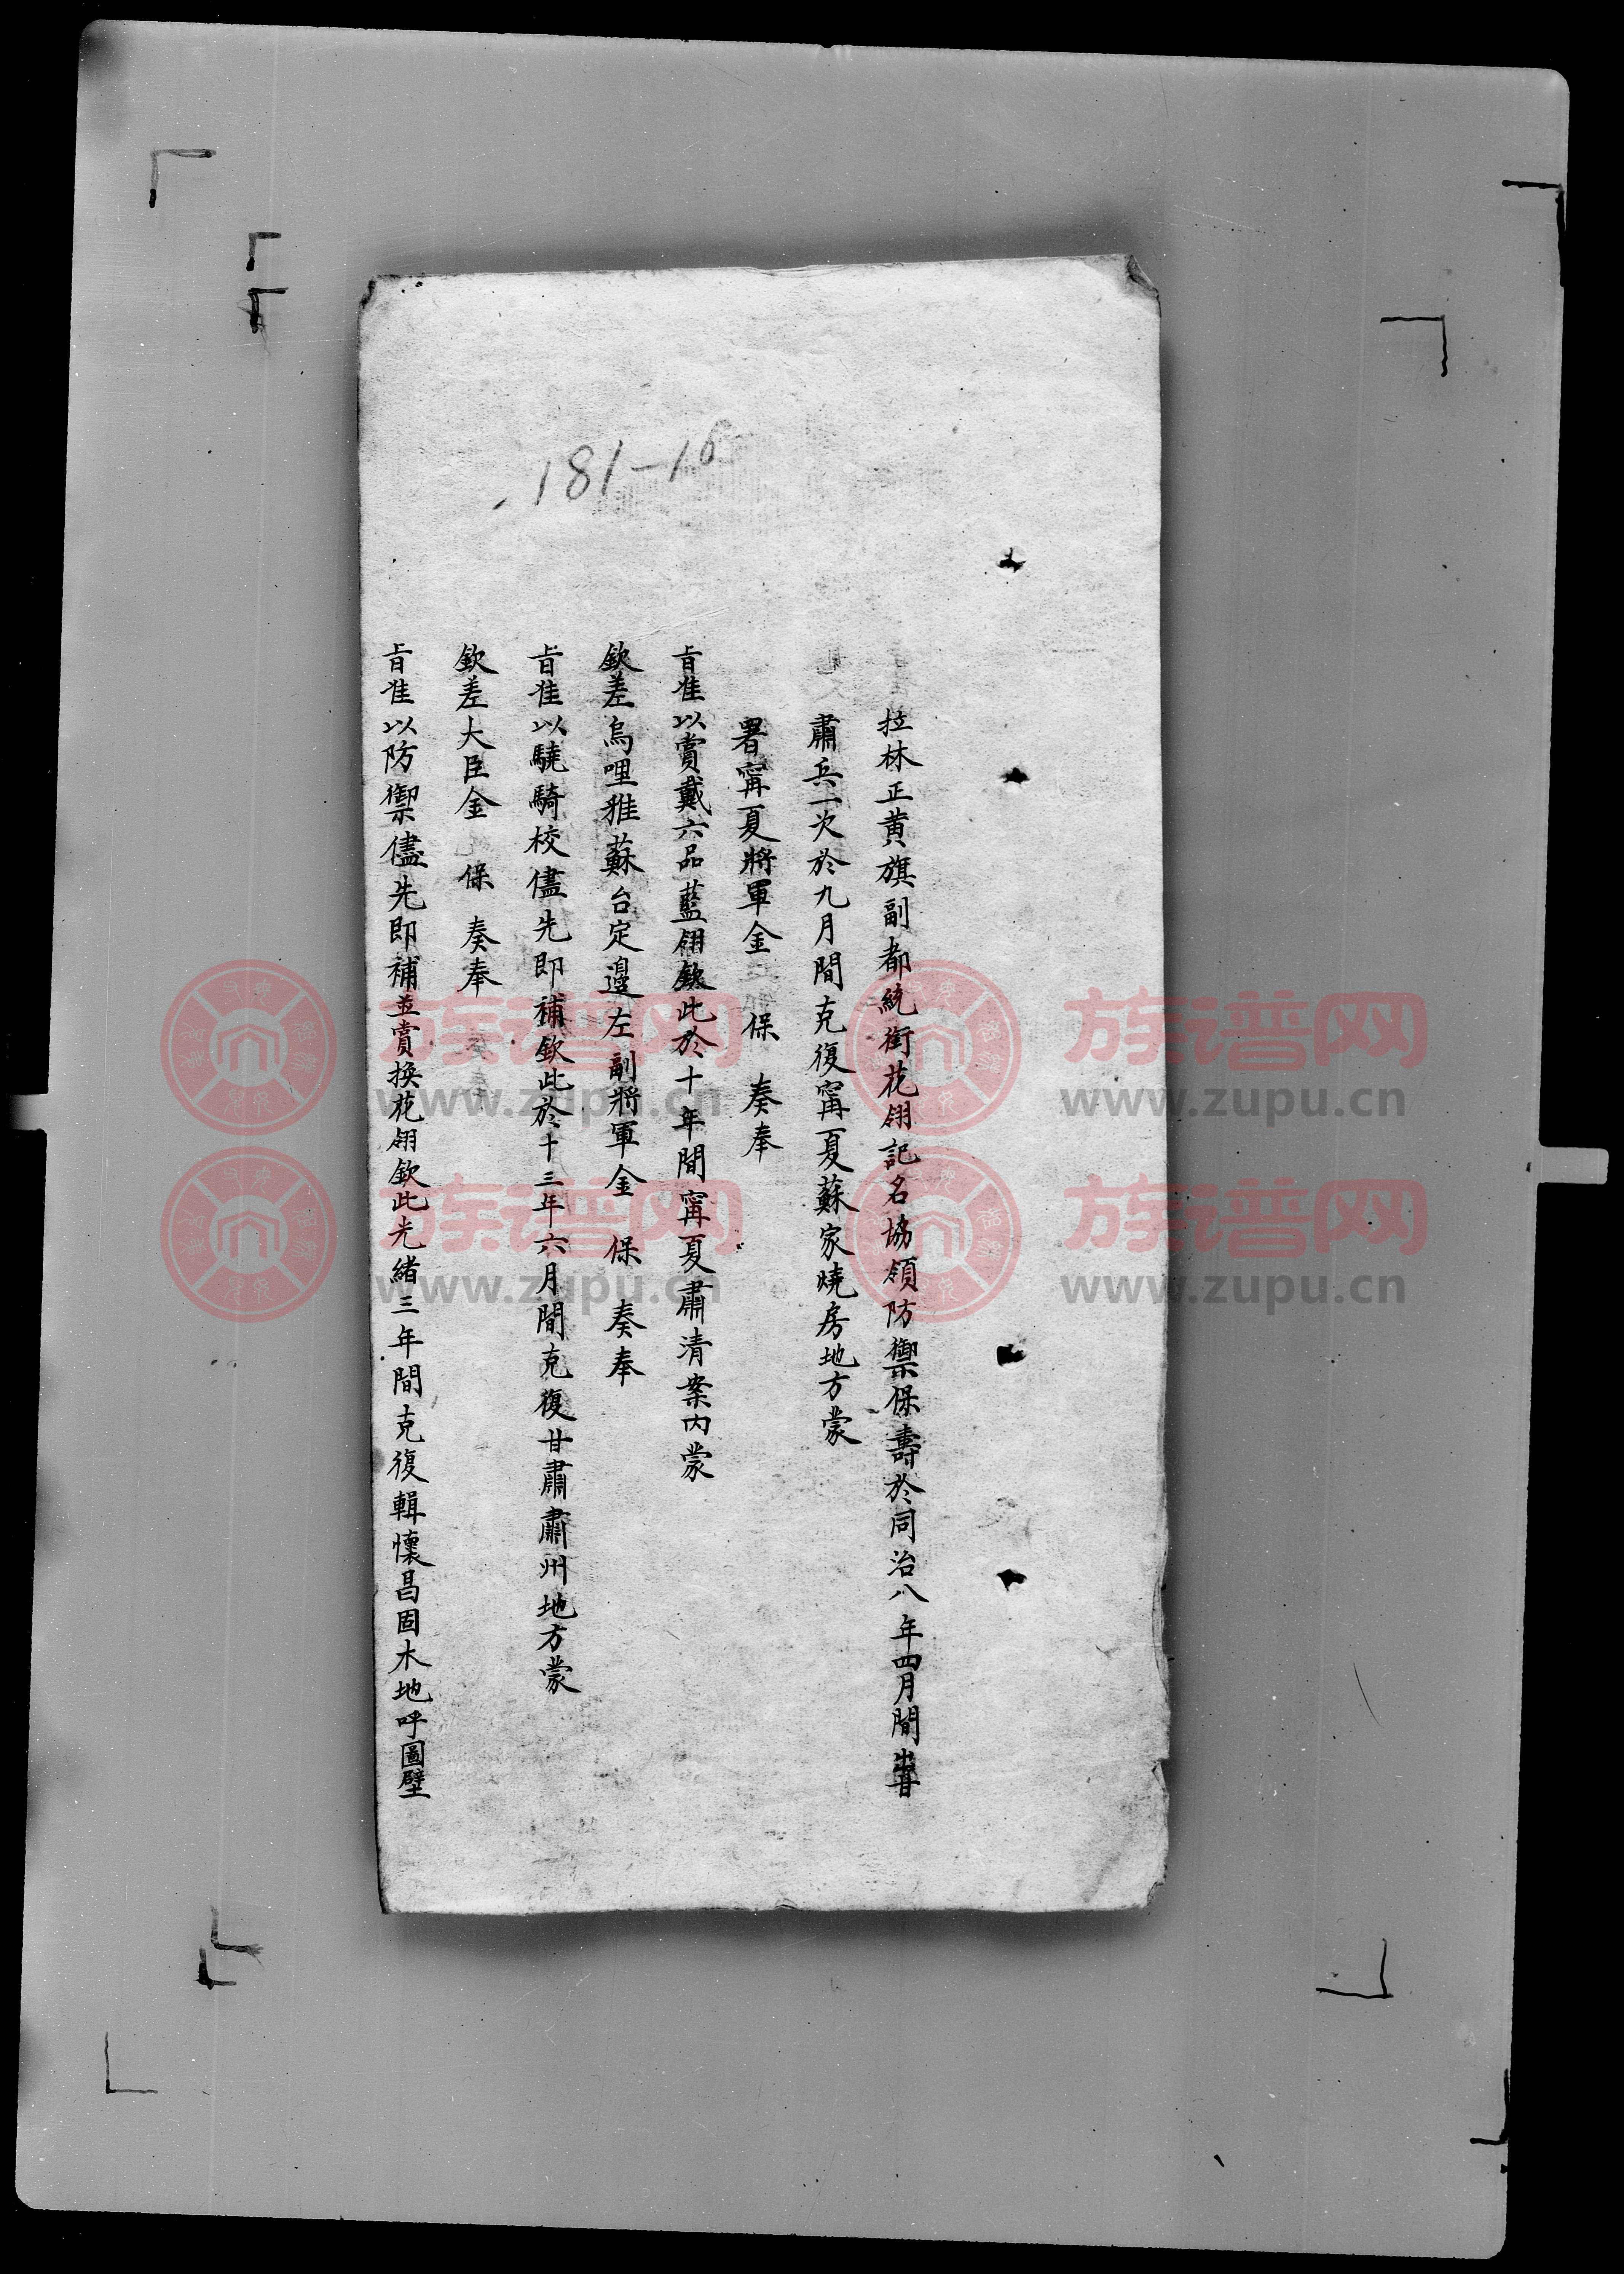 181-16
拉林正黃旗副都統銜花翎記名協領防禦保壽於同治八年四月間出甘
肅兵一次於九月間克復甯夏蘇家燒房地方蒙
署甯夏將軍金 保 奏奉
旨准以賞戴六品藍翎欽此於十年間甯夏肅清案內蒙
欽差烏哩雅蘇台定邊左副將軍金 保 奏奉
旨准以驍騎校儘先即補欽此於十三年六月間克復甘肅肅州地方蒙
欽差大臣金 保 奏奉
旨准以防禦儘先即補並賞換花翎欽此光緒三年間克復輯懷昌固木地呼圖壁
族谱网 www.zupu.cn
族谱网 www.zupu.cn
族谱网 www.zupu.cn
族谱网 www.zupu.cn